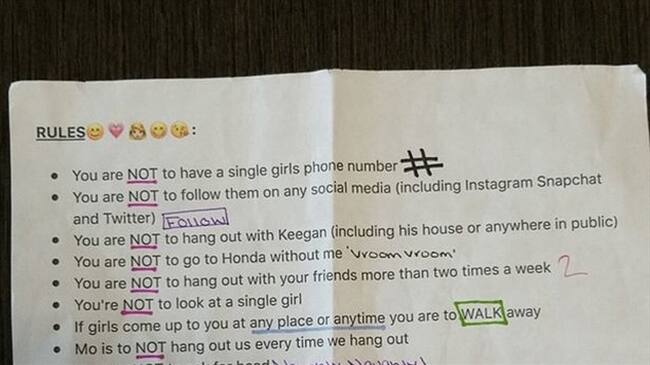 RULES😊💗👸😋😘:
• You are NOT to have a single girls phone number #
• You are NOT to follow them on any social media (including Instagram Snapchat
and Twitter) Follow
• You are NOT to hang out with Keegan (including his house or anywhere in public)
• You are NOT to go to Honda without me 'vroomvroom'
• You are NOT to hang out with your friends more than two times a week 2
• You're NOT to look at a single girl
• If girls come up to you at any place or anytime you are to WALK away
• Mo is to NOT hang out us every time we hang out